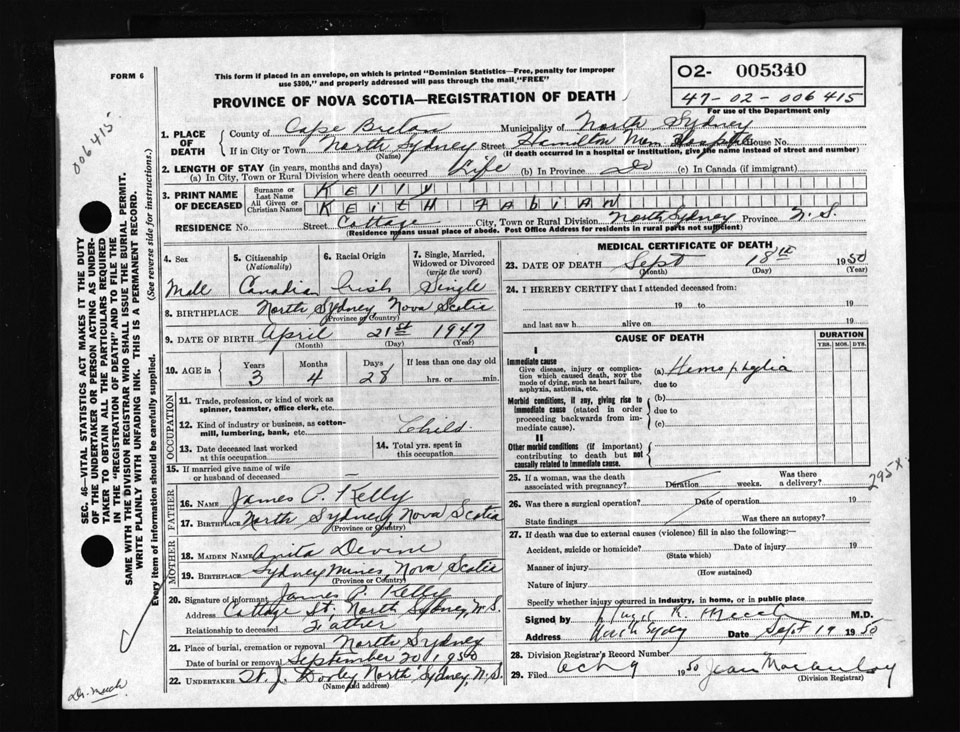 FORM 6
This form if placed in an envelope, on which is printed "Dominion Statistics—Free, penalty for improper
use $300," and properly addressed will pass through the mail "FREE"
PROVINCE OF NOVA SCOTIA—REGISTRATION OF DEATH
O2- 005340
47-02-006415
For use of the Department only
006415
1. PLACE OF DEATH
County of Cape Breton Municipality of North Sydney
If in City or Town North Sydney Street Hamilton Mem Hospital House No.
(Name) (If death occurred in a hospital or institution, give the name instead of street and number)
2. LENGTH OF STAY (in years, months and days)
(a) In City, Town or Rural Division where death occurred Life (b) In Province Do (c) In Canada (if immigrant)
3. PRINT NAME OF DECEASED
Surname or Last Name KELLY
All Given or Christian Names KEITH FABIAN
RESIDENCE No. Street Cottage City, Town or Rural Division North Sydney Province N.S.
(Residence means usual place of abode. Post Office Address for residents in rural parts not sufficient)
4. Sex
Male
5. Citizenship (Nationality)
Canadian
6. Racial Origin
Irish
7. Single, Married, Widowed or Divorced (write the word)
Single
8. BIRTHPLACE North Sydney Nova Scotia
(Province or Country)
9. DATE OF BIRTH April 21st 1947
(Month) (Day) (Year)
10. AGE in Years 3 Months 4 Days 28 If less than one day old
hrs. or min.
OCCUPATION
11. Trade, profession, or kind of work as
spinner, teamster, office clerk, etc.
12. Kind of industry or business, as cotton-
mill, lumbering, bank, etc. Child
13. Date deceased last worked
at this occupation
14. Total yrs. spent in
this occupation
15. If married give name of wife
or husband of deceased —
FATHER
16. NAME James P. Kelly
17. BIRTHPLACE North Sydney, Nova Scotia
(Province or Country)
MOTHER
18. MAIDEN NAME Anita Devine
19. BIRTHPLACE Sydney Mines, Nova Scotia
(Province or Country)
20. Signature of informant James P. Kelly
Address Cottage St. North Sydney, N.S.
Relationship to deceased Father
21. Place of burial, cremation or removal North Sydney
Date of burial or removal September 20, 1950
22. UNDERTAKER W. J. Dooley North Sydney, N.S.
(Name and address)
MEDICAL CERTIFICATE OF DEATH
23. DATE OF DEATH Sept 18th 1950
(Month) (Day) (Year)
24. I HEREBY CERTIFY that I attended deceased from:
19 to 19
and last saw h alive on 19
CAUSE OF DEATH
DURATION
YRS. MOS. DYS.
I
Immediate cause
Give disease, injury or complica-
tion which caused death, not the
mode of dying, such as heart failure,
asphyxia, asthenia, etc.
(a) Hemophylia
due to
Morbid conditions, if any, giving rise to
immediate cause (stated in order
proceeding backwards from im-
mediate cause).
(b)
due to
(c)
II
Other morbid conditions (if important)
contributing to death but not
causally related to immediate cause.
25. If a woman, was the death
associated with pregnancy? Duration weeks. Was there
a delivery?
295X
26. Was there a surgical operation? Date of operation 19
State findings Was there an autopsy?
27. If death was due to external causes (violence) fill in also the following:—
Accident, suicide or homicide? Date of injury 19
(State which)
Manner of injury
(How sustained)
Nature of injury
Specify whether injury occurred in industry, in home, or in public place
Signed by Hugh R. M.D.
Address North Sydney Date Sept 19 1950
28. Division Registrar's Record Number
29. Filed Oct 9 1950 Jean
(Division Registrar)
SEC. 46—VITAL STATISTICS ACT MAKES IT THE DUTY
OF THE UNDERTAKER OR PERSON ACTING AS UNDER-
TAKER TO OBTAIN ALL THE PARTICULARS REQUIRED
IN THE "REGISTRATION OF DEATH" AND TO FILE THE
SAME WITH THE DIVISION REGISTRAR WHO SHALL ISSUE THE BURIAL PERMIT.
WRITE PLAINLY WITH UNFADING INK. THIS IS A PERMANENT RECORD.
Every item of information should be carefully supplied. (See reverse side for instructions.)